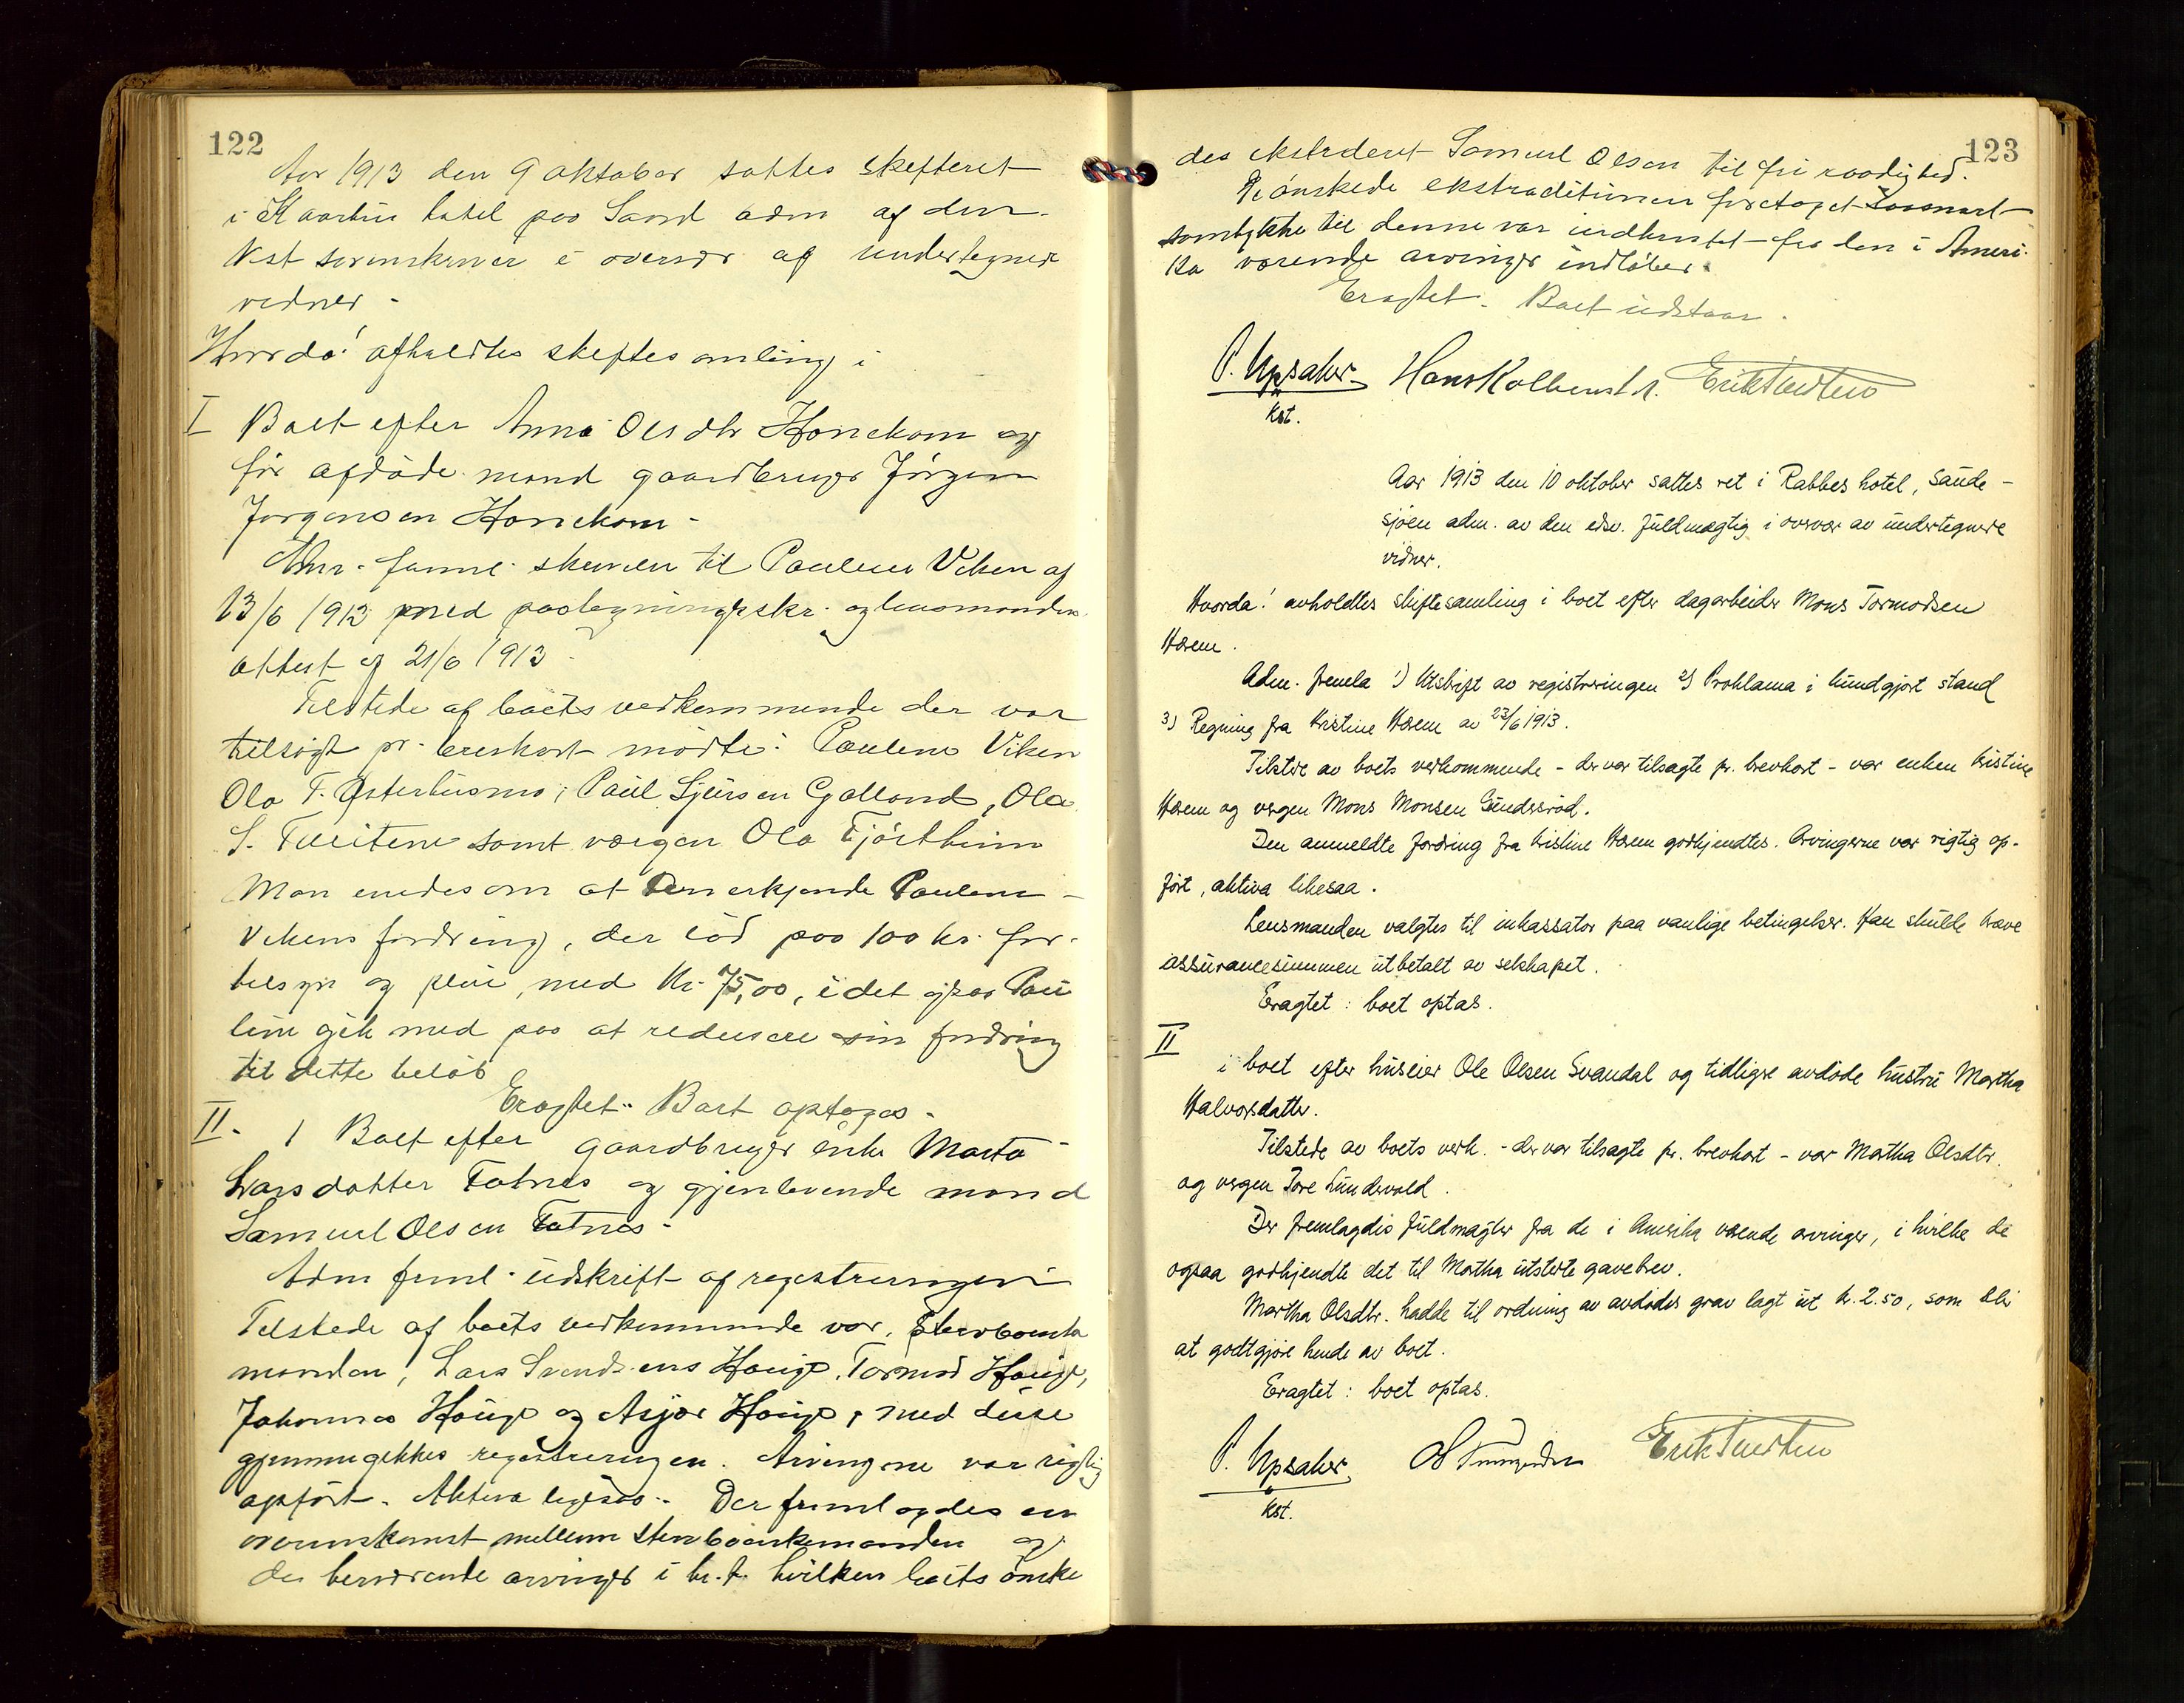 122
Aar 1913 den 9 oktober sattes skifteret
i Kaarhus hotel paa Sand adm af den
kst sorenskriver i overvær af undertegnede
vidner.
Hvorda! afholdtes skiftesamling i
I Boet efter Anna Olsdtr Honekam og
før afdøde mand gaardbruger Jørgen
Jørgensen Honekam.
Adm. freml. skrivelse til Pauline Viken af
13/6 1913 med paategning skr. og lensmandens
attest af 21/6 1913.
Tilstede af boets vedkommende der var
tilsagt pr. brevkort mødte: Pauline Viken
Ola T. Østerhusmo, Paul Sjursen Galland, Ola
S. Tveitene samt værgen Ola Fjørtheim
Man enedes om at anerkjende Pauline
Vikens fordring, der lød paa 100 kr. for
tilsyn og pleie, med Kr. 75,00, idet ogsaa Pau
line gik med paa at redusere sin fordring
til dette beløb
Eragtet: Boet optages.
II. I Boet efter gaardbruger enke Marta
Larsdatter Fatnes og gjenlevende mand
Samuel Olsen Fatnes.
Adm freml. udskrift af registreringen
Tilstede af boets vedkommende var, sterboenke
manden, Lars Svendsens Hauge, Tormod Hauge,
Johannes Hauge og Asjær Hauge, med disse
gjennemgikkes registreringen. Arvingene var rigtig
opført. Aktiva ligesaa. Der fremlagdes en
overenskomst mellem sterboenkemanden og
de herværende arvinger i h.t. hvilken boets ønske
123
des ekstraderet Samuel Olsen til fri raadighed.
De ønskede ekstraditionen foretaget saasnart
samtykke til denne var indhentet fra den i Ameri
ka værende arvinger indløber.
Eragtet. Boet udstaar.
P. Upsaker Hans Kolbenstv. Erik Tveiten
Kst.
Aar 1913 den 10 oktober sattes ret i Rabbes hotel, Saude-
sjøen adm. av den edsv. fuldmægtig i overvær av undertegnede
vidner.
Hvorda! avholdtes skiftesamling i boet efter dagarbeider Mons Tormodsen
Hærem.
Adm. fremla 1) Utskrift av registreringen 2) Proklama i kundgjort stand
3) Regning fra Kristine Hærem av 23/6 1913.
Tilstede av boets vedkommende - der var tilsagte pr. brevkort - var enken Kristine
Hærem og vergen Mons Monsen Gundersrød.
Den anmeldte fordring fra Kristine Hærem godkjendtes. Arvingerne var rigtig op-
ført, aktiva likesaa.
Lensmanden valgtes til inkassator paa vanlige betingelser. Han skulde kræve
assurancesummen utbetalt av selskapet.
Eragtet: boet optas.
II
i boet efter huseier Ole Olsen Svandal og tidligere avdøde hustru Martha
Halvorsdatter.
Tilstede av boets vedk. - der var tilsagte pr. brevkort - var Martha Olsdtr.
og vergen Tore Lundevold.
Der fremlagdes fuldmagter fra de i Amerika værende arvinger, i hvilke de
ogsaa godkjendte det til Martha utstedte gavebrev.
Martha Olsdtr. hadde til ordning av avdødes grav lagt ut kr. 2.50, som blir
at godtgjøre hende av boet.
Eragtet: boet optas.
P. Upsaker Erik Tveiten
Kst.